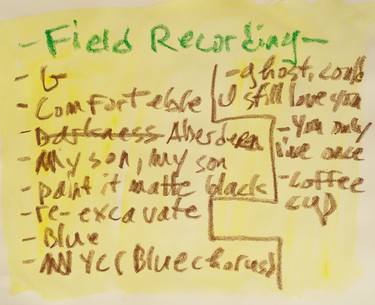 -Field Recording-
- G
- Comforteble
- Darkness Aberdeen
- My son, my son
- paint it matte black
- re-excavate
- Blue
- NYC (Blue chorus)
- ghost, could
u still love you
- You only
live once
- Coffee
cup